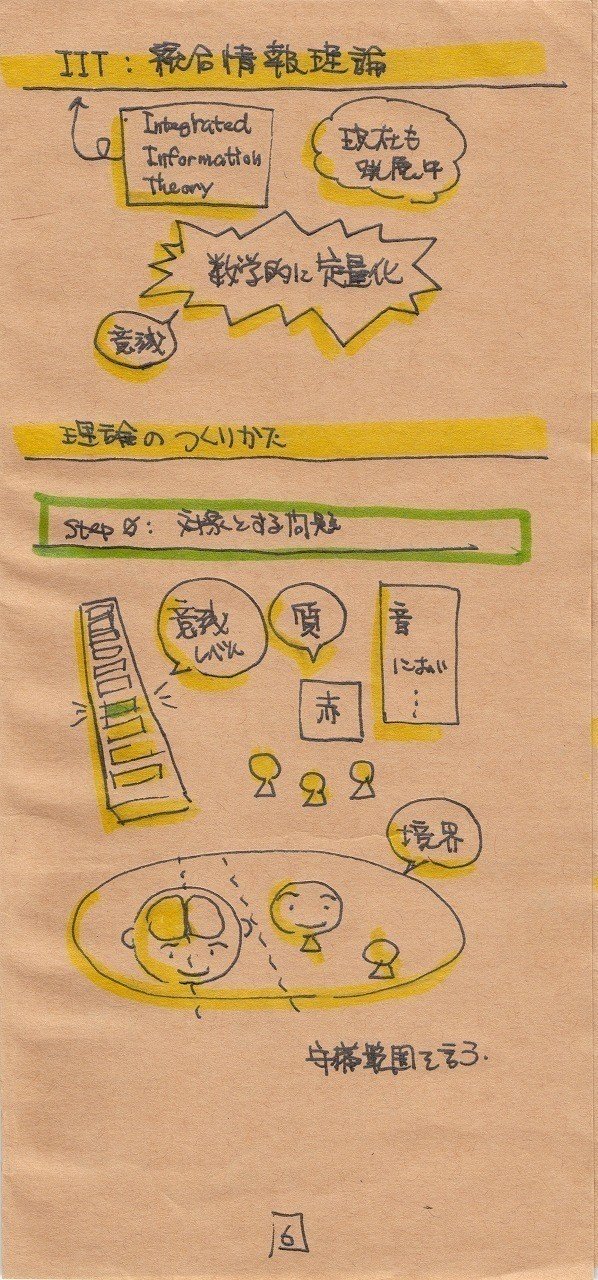 IIT：統合情報理論
Integrated
Information
Theory
現在も
発展中
数学的に定量化
意識
理論のつくりかた
Step 0: 対象とする問題
意識
レベル
質
音
におい
赤
境界
守備範囲を言う.
6